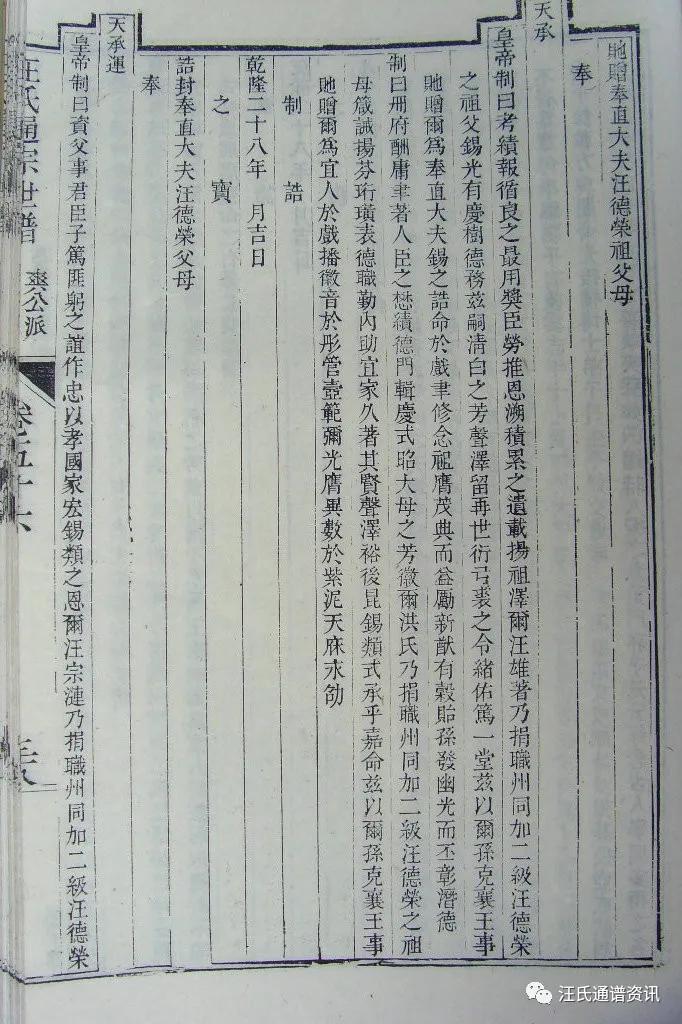 貤贈奉直大夫汪德榮祖父母
奉
天承
皇帝制曰考績報循良之最用獎臣勞推恩溯積累之遺載揚祖澤爾汪雄著乃捐職州同加二級汪德榮
之祖父錫光有慶樹德務兹嗣清白之芳聲澤留再世衍弓裘之令緒佑篤一堂兹以爾孫克襄王事
貤贈爾爲奉直大夫錫之誥命於戲聿修念祖膺茂典而益勵新猷有穀貽孫發幽光而丕彰潛德
制曰冊府酬庸聿著人臣之懋績德門輯慶式昭大母之芳徽爾洪氏乃捐職州同加二級汪德榮之祖
母箴誡揚芬珩璜表德職勤內助宜家久著其賢聲澤裕後昆錫類式承乎嘉命兹以爾孫克襄王事
貤贈爾爲宜人於戲播徽音於彤管壼範彌光膺異數於紫泥天庥永劭
制 誥
乾隆二十八年 月吉日
之 寶
誥封奉直大夫汪德榮父母
奉
天承運
皇帝制曰資父事君臣子篤匪躬之誼作忠以孝國家宏錫類之恩爾汪宗漣乃捐職州同加二級汪德榮
汪氏通宗世譜 爽公派 卷五十六
汪氏通谱资讯